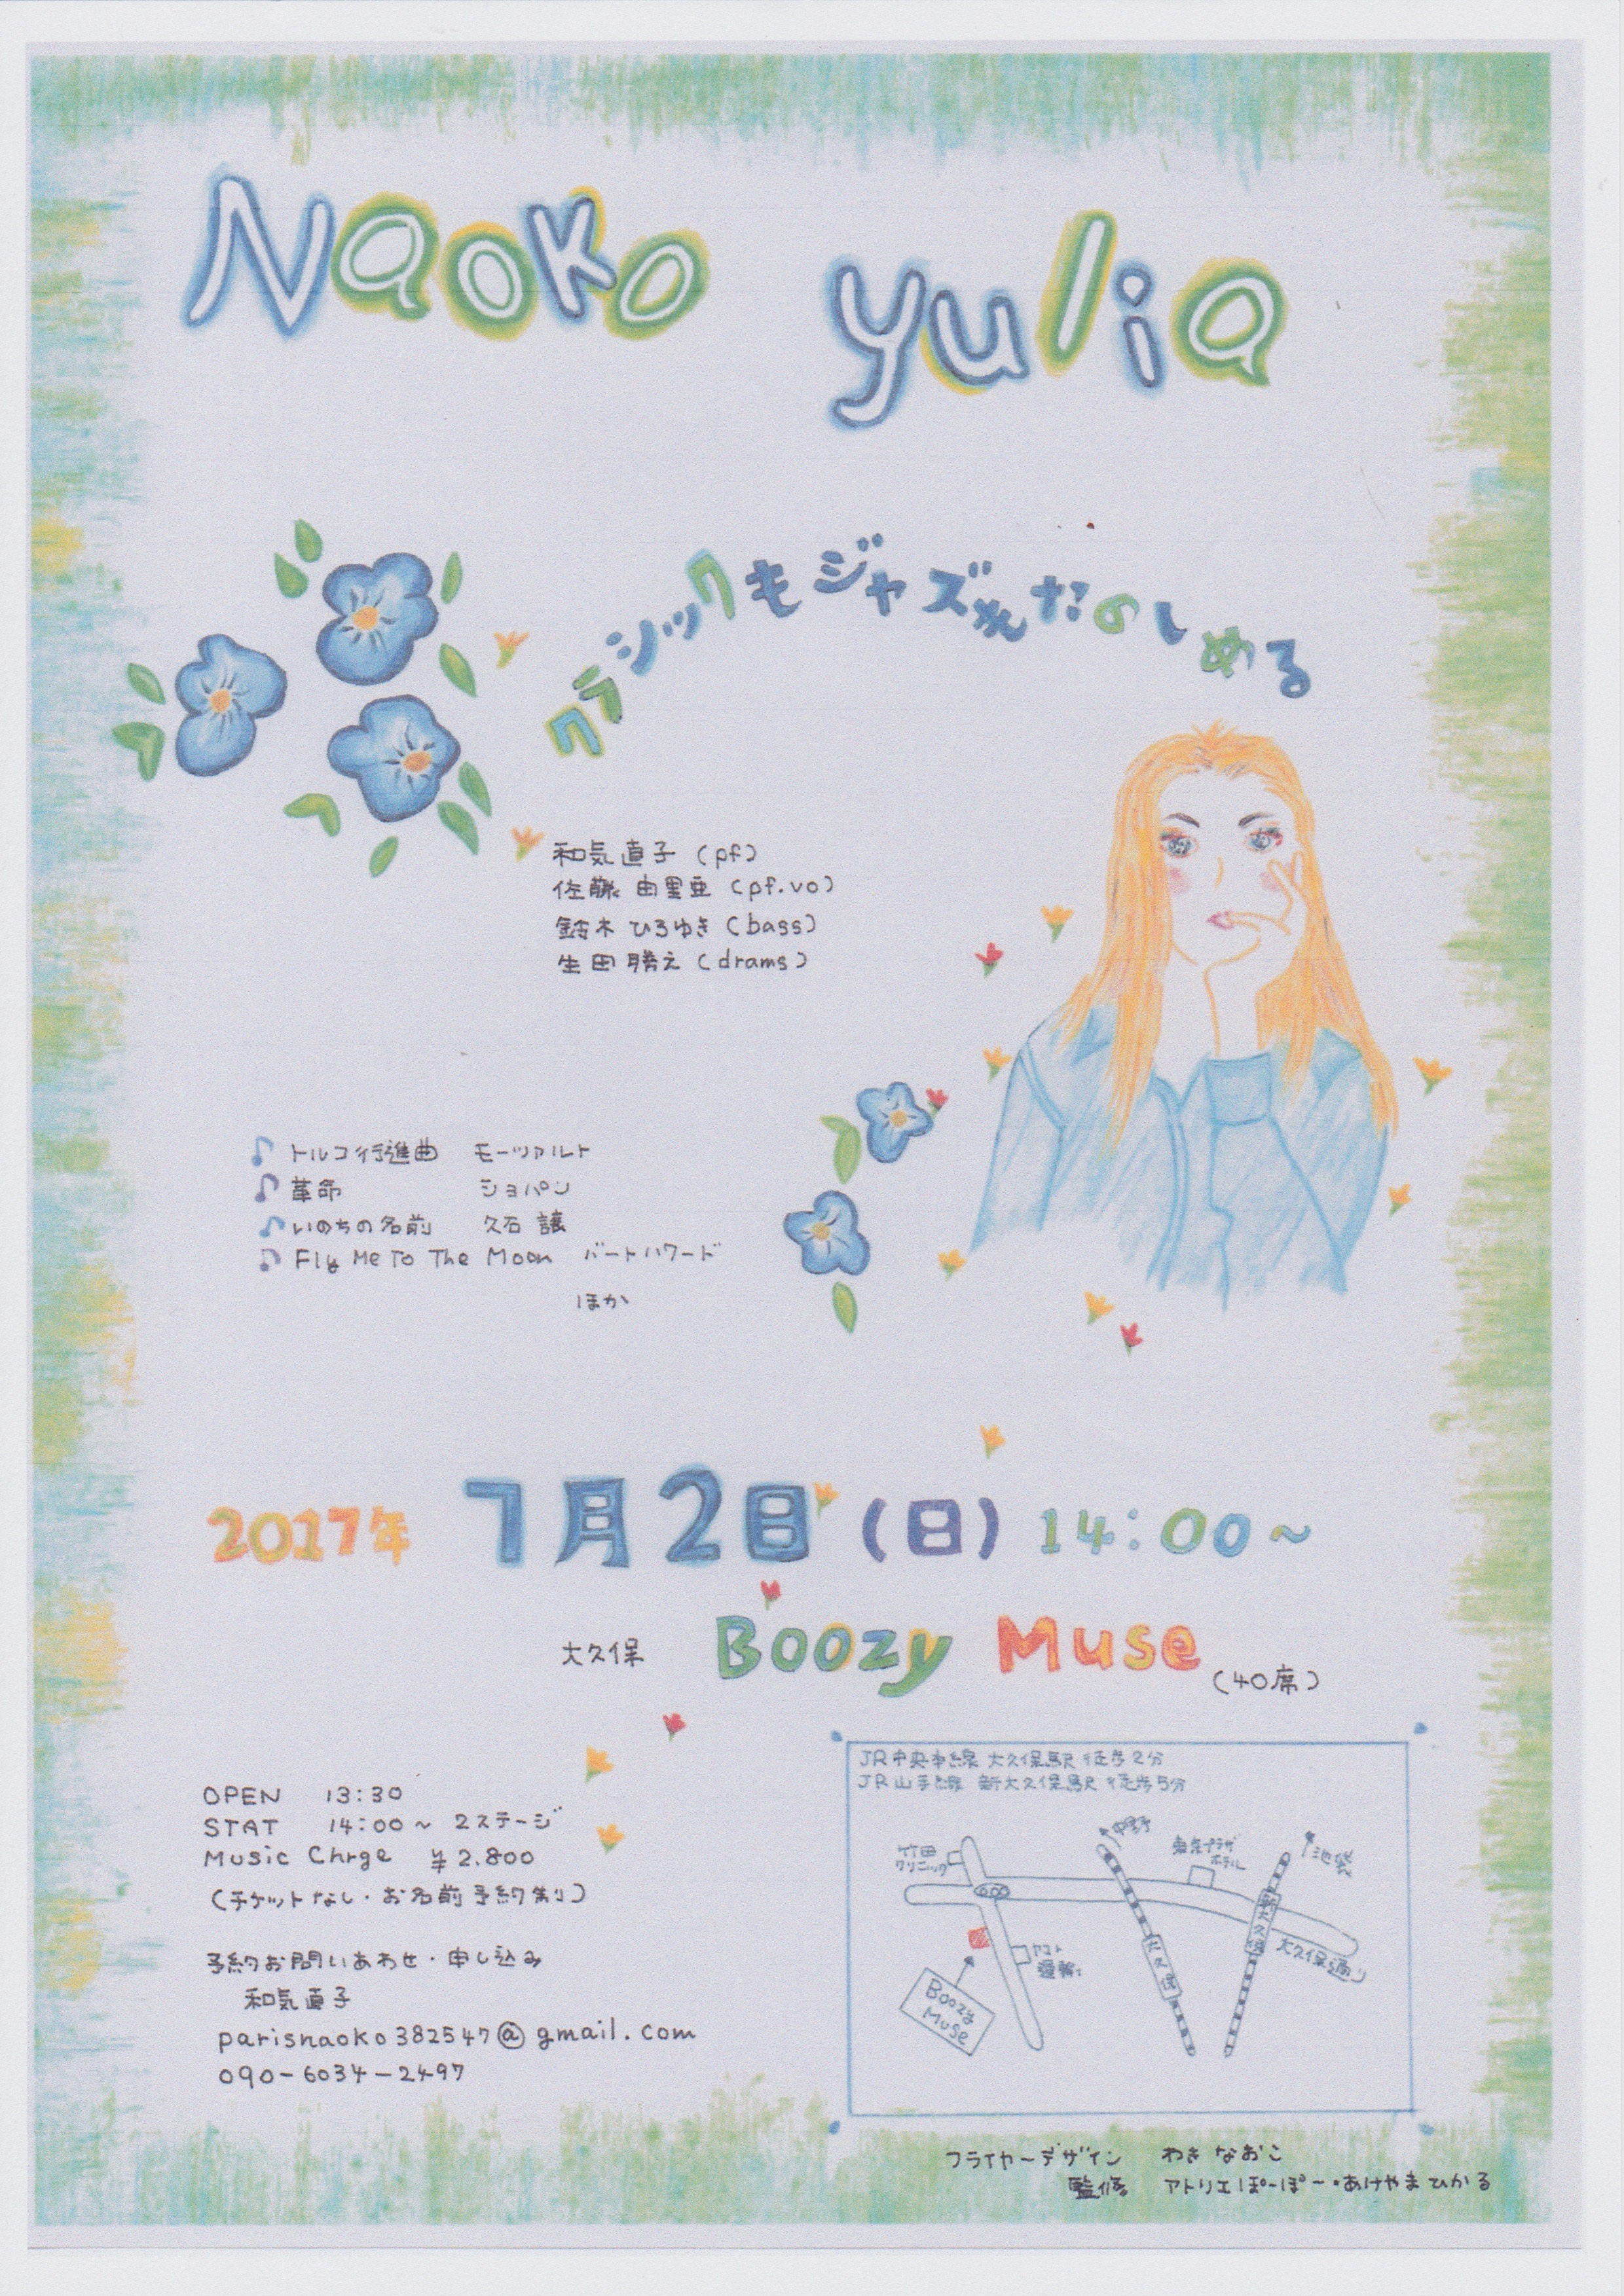 Naoko yulia
クラシックもジャズもたのしめる
和気直子 (pf)
佐藤 由里亜 (pf.vo)
鈴木 ひろゆき (bass)
生田 勝え (drams)
♪ トルコ行進曲 モーツァルト
♪ 革命 ショパン
♪ いのちの名前 久石 譲
♪ Fly Me To The Moon バートハワード
ほか
2017年 7月2日 (日) 14:00~
大久保 Boozy Muse (40席)
OPEN 13:30
STAT 14:00~ 2ステージ
Music Chrge ¥2.800
(チケットなし・お名前予約制)
予約お問いあわせ・申し込み
和気直子
parisnaoko382547@gmail.com
090-6034-2497
JR中央本線 大久保駅 徒歩2分
JR山手線 新大久保駅 徒歩5分
竹田
クリニック
中野
東京プラザ
ホテル
池袋
ヤマト
運輸
大久保
新大久保
大久保通り
Boozy
Muse
フライヤーデザイン わき なおこ
監修 アトリエぽーぽー・あけやまひかる